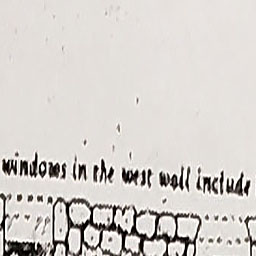 windows in the west wall include